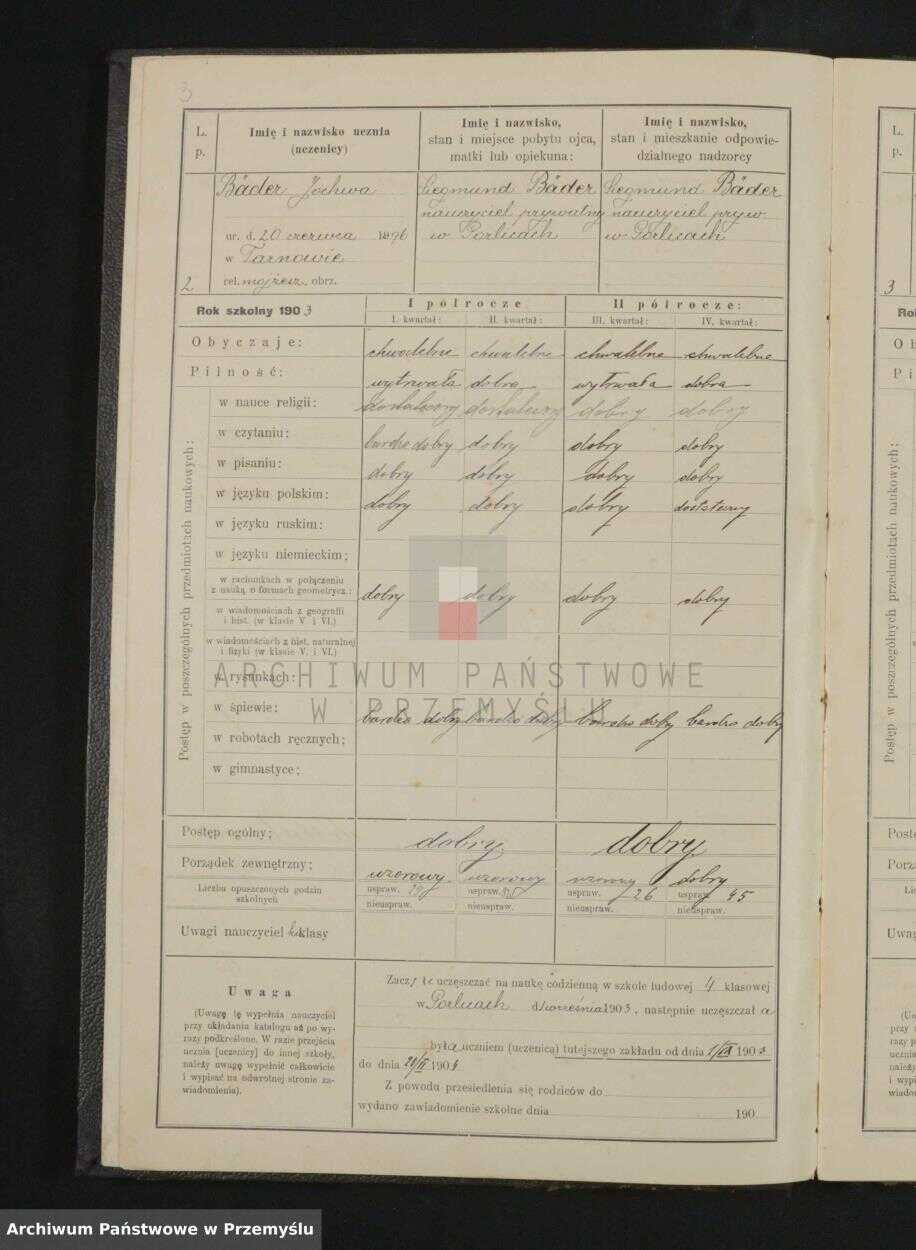 3
L. p.
Imię i nazwisko ucznia
(uczenicy)
Imię i nazwisko,
stan i miejsce pobytu ojca,
matki lub opiekuna:
Imię i nazwisko,
stan i mieszkanie odpowie-
dzialnego nadzorcy
Bäder Jochwa
ur. d. 20 czerwca 1896
w Tarnowie
2 rel. mojżesz. obrz.
Siegmund Bäder
nauczyciel prywatny
w Gorlicach
Siegmund Bäder
nauczyciel pryw
w Gorlicach
Rok szkolny 1903
I półrocze
II półrocze:
I. kwartał: II. kwartał: III. kwartał: IV. kwartał:
Obyczaje: chwalebne chwalebne chwalebne chwalebne
Pilność: wytrwała dobra wytrwała dobra
Postęp w poszczególnych przedmiotach naukowych:
w nauce religii: dostateczny dostateczny dobry dobry
w czytaniu: bardzo dobry dobry dobry dobry
w pisaniu: dobry dobry dobry dobry
w języku polskim: dobry dobry dobry
w języku ruskim:
w języku niemieckim;
w rachunkach w połączeniu
z nauką o formach geometrycz.: dobry dobry dobry dobry
w wiadomościach z geografii
i hist. (w klasie V. i VI.)
w wiadomościach z hist. naturalnej
i fizyki (w klasie V. i VI.)
w rysunkach:
w śpiewie: bardzo dobry bardzo dobry bardzo dobry bardzo dobry
w robotach ręcznych;
w gimnastyce;
Postęp ogólny; dobry dobry
Porządek zewnętrzny; wzorowy wzorowy wzorowy dobry
Liczba opuszczonych godzin
szkolnych
uspraw. uspraw. uspraw. 26 uspraw 45
nieuspraw. nieuspraw. nieuspraw. nieuspraw.
Uwagi nauczyciel klasy
Uwaga
(Uwagę tę wypełnia nauczyciel
przy układaniu katalogu aż po wy-
razy podkreślone. W razie przejścia
ucznia [uczenicy] do innej szkoły,
należy uwagę wypełnić całkowicie
i wypisać na odwrotnej stronie za-
wiadomienia).
uczęszczać na naukę codzienną w szkole ludowej 4 klasowej
w Gorlicach d września 1903, następnie uczęszczał a
była uczniem (uczenicą) tutejszego zakładu od dnia 1/IX 1903
do dnia 1904
Z powodu przesiedlenia się rodziców do
wydano zawiadomienie szkolne dnia 190
L.
p.
3
Postęp w poszczególnych przedmiotach naukowych:
ARCHIWUM PAŃSTWOWE
W PRZEMYŚLU
Archiwum Państwowe w Przemyślu